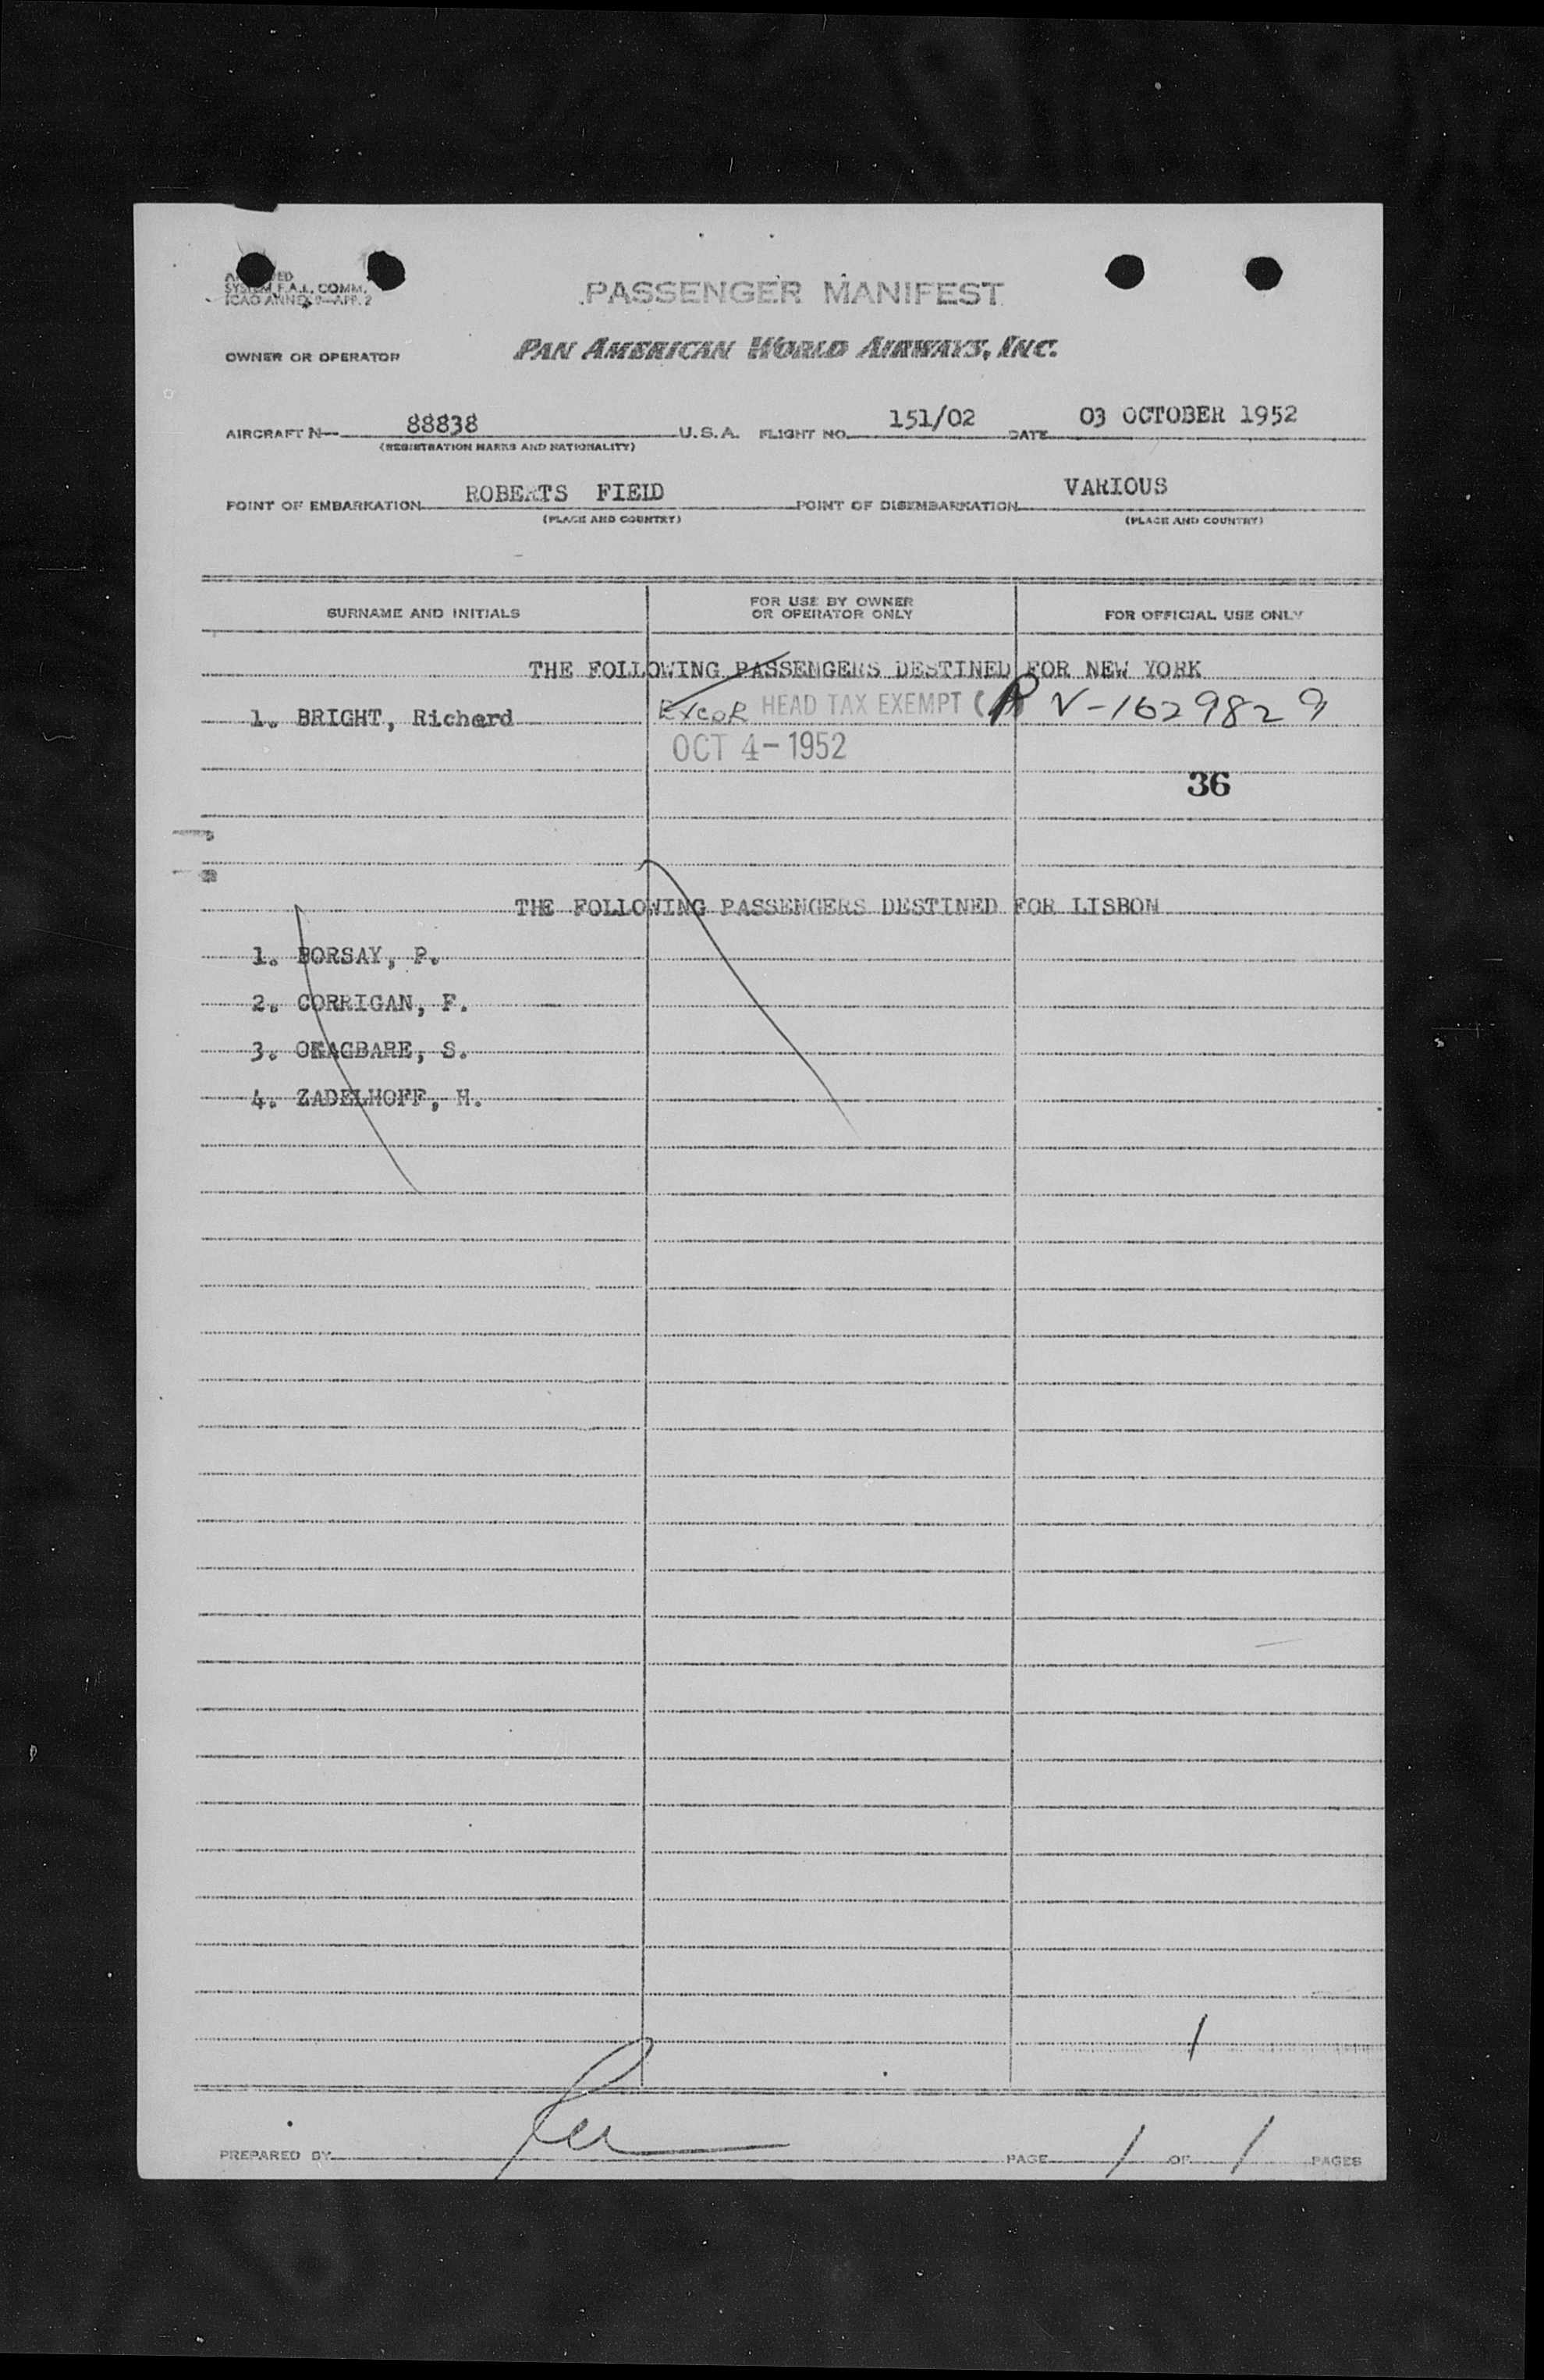 SYSTEM F.A.L. COMM.
ICAO ANNEX 9—APP. 2
PASSENGER MANIFEST
OWNER OR OPERATOR PAN AMERICAN WORLD AIRWAYS, INC.
AIRCRAFT N— 88838 U.S.A. FLIGHT NO. 151/02 DATE 03 OCTOBER 1952
(REGISTRATION MARKS AND NATIONALITY)
POINT OF EMBARKATION ROBERTS FIELD POINT OF DISEMBARKATION VARIOUS
(PLACE AND COUNTRY) (PLACE AND COUNTRY)
SURNAME AND INITIALS FOR USE BY OWNER OR OPERATOR ONLY FOR OFFICIAL USE ONLY
THE FOLLOWING PASSENGERS DESTINED FOR NEW YORK
1. BRIGHT, Richard HEAD TAX EXEMPT ( V-1629829
OCT 4-1952
36
THE FOLLOWING PASSENGERS DESTINED FOR LISBON
1. BORSAY, P.
2. CORRIGAN, F.
3. OKAGBARE, S.
4. ZADELHOFF, H.
1
PREPARED BY PAGE 1 OF 1 PAGES